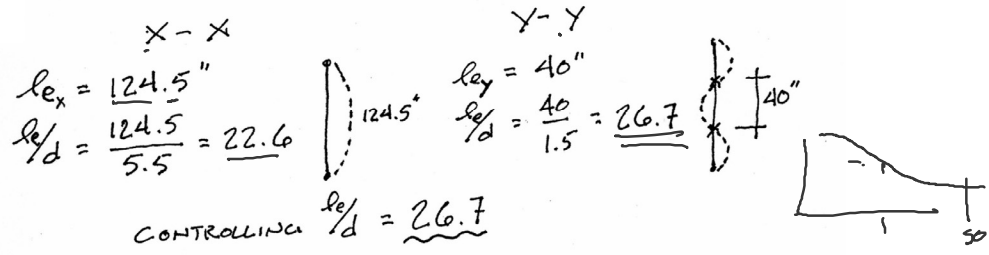 X - X
le_x = 124.5"
le/d = 124.5/5.5 = 22.6
124.5"
Y - Y
le_y = 40"
le/d = 40/1.5 = 26.7
40"
CONTROLLING le/d = 26.7
50